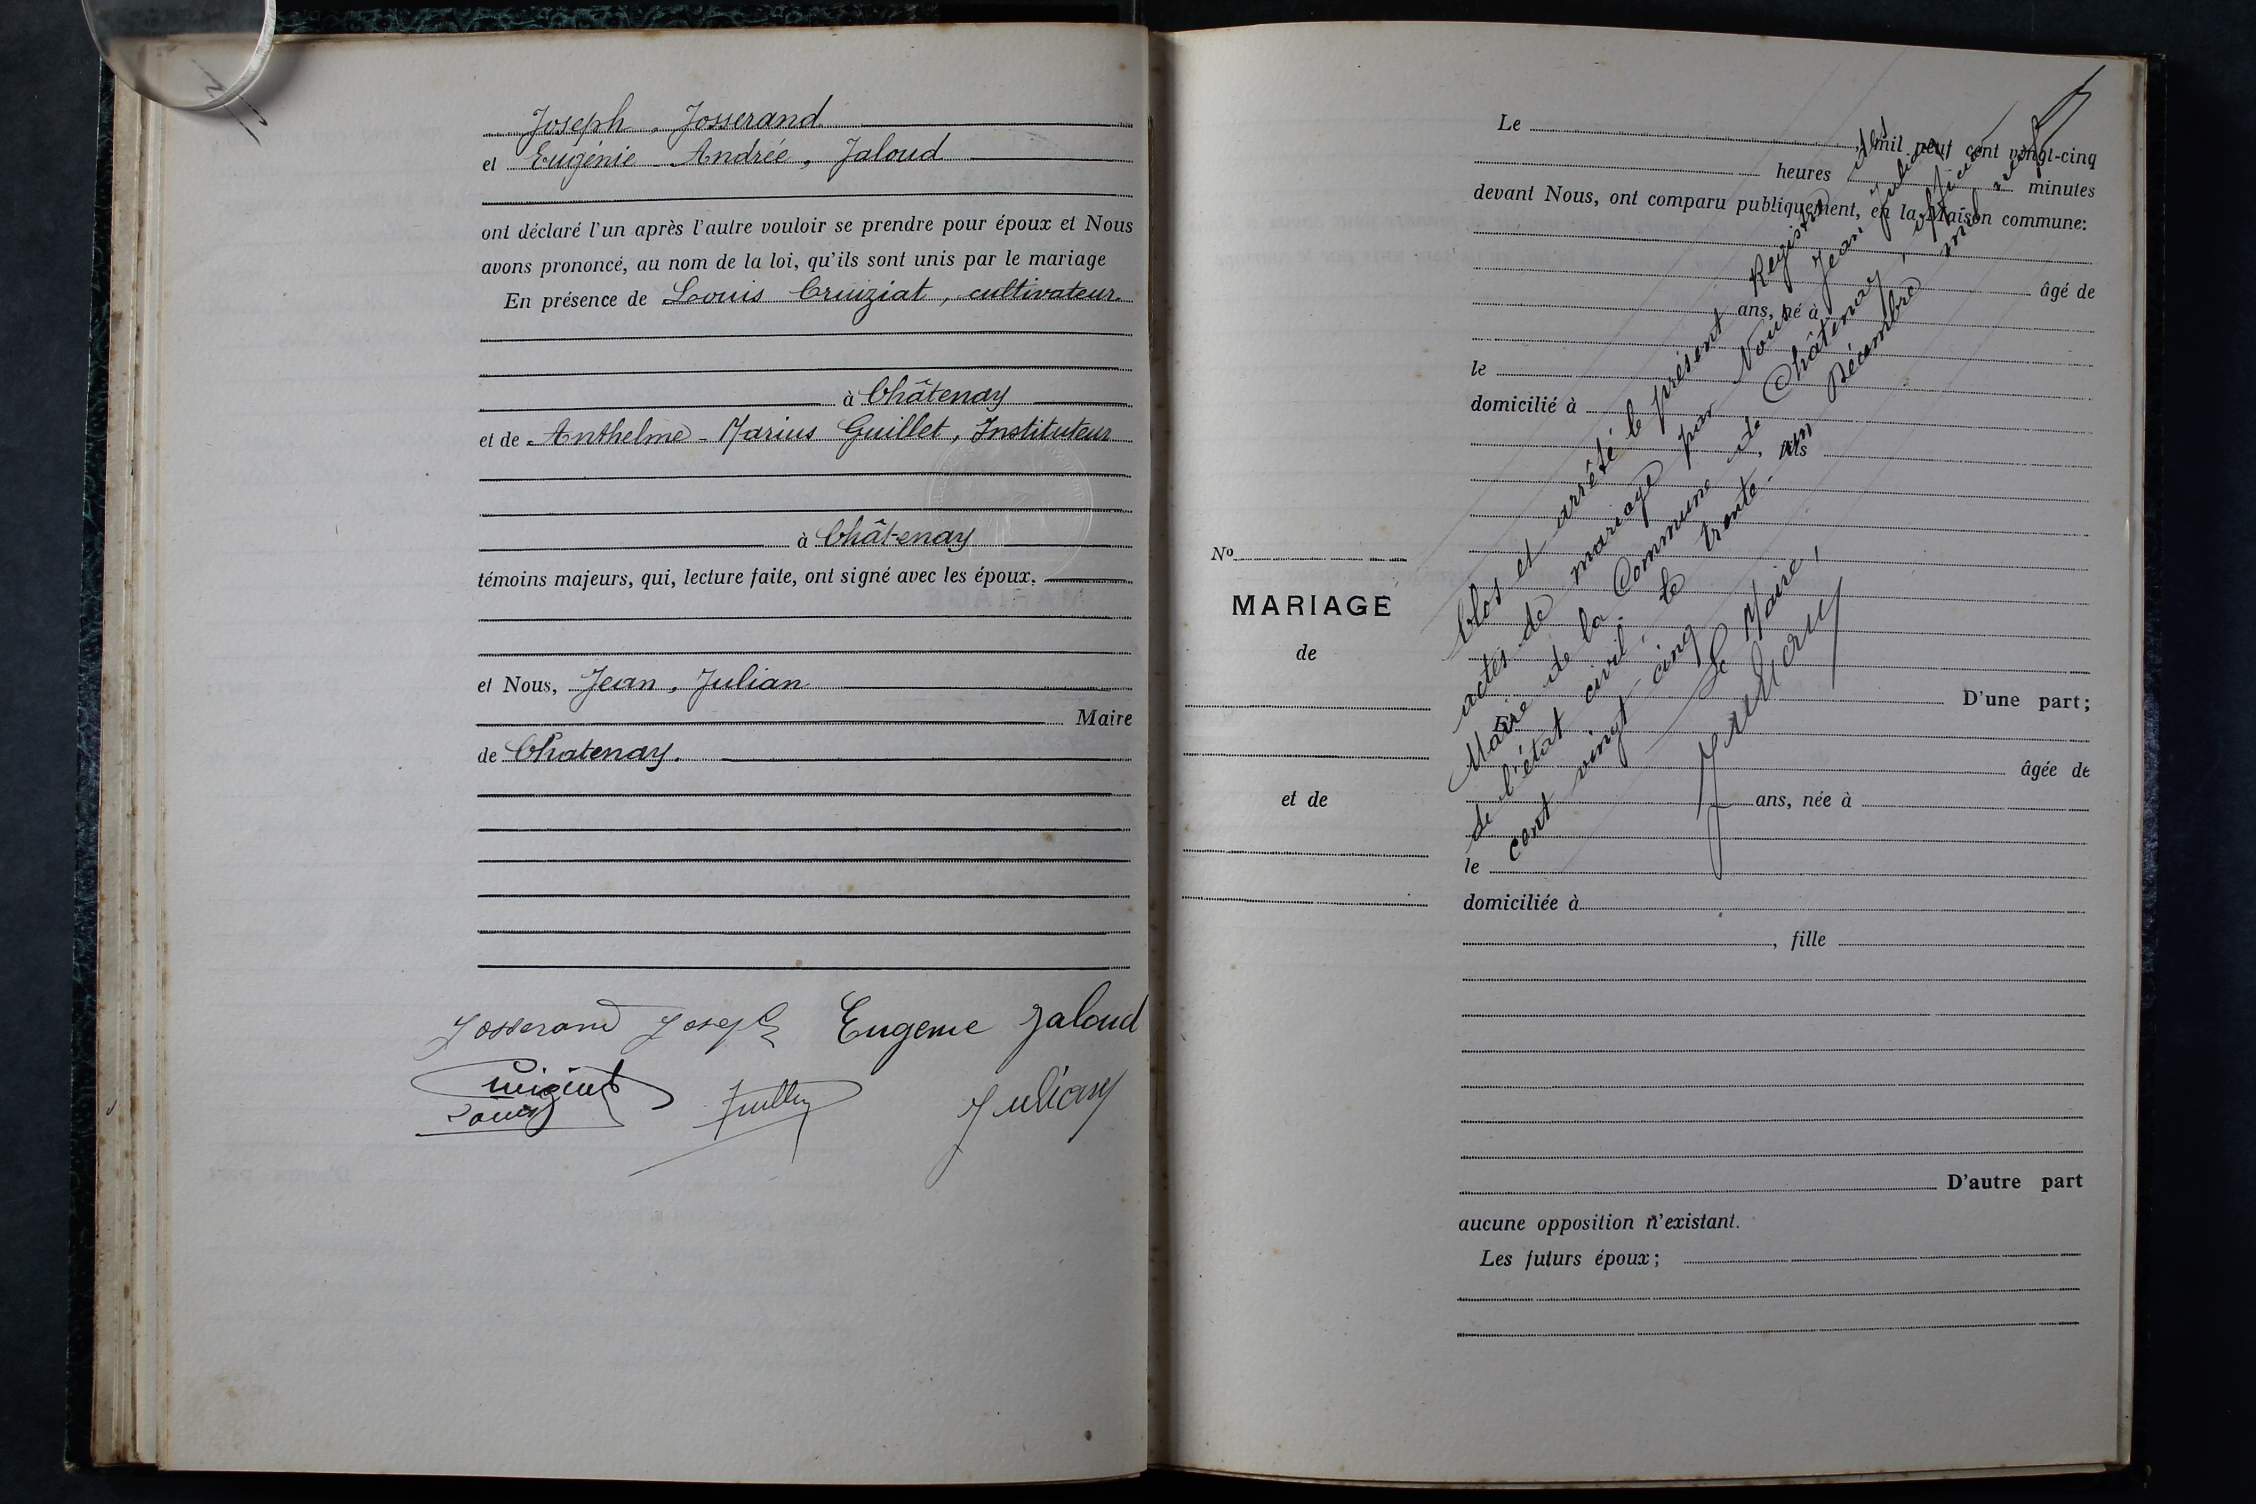 Joseph, Josserand
et Eugénie Andrée, Jaloud
ont déclaré l'un après l'autre vouloir se prendre pour époux et Nous
avons prononcé, au nom de la loi, qu'ils sont unis par le mariage
En présence de Louis Cruiziat, cultivateur
à Châtenay
et de Anthelme-Marius Guillet, Instituteur
à Châtenay
témoins majeurs, qui, lecture faite, ont signé avec les époux.
et Nous, Jean, Julian
Maire
de Chatenay.
Josserand Joseph Eugenie Jaloud
Louis
Julian
Le , mil neuf cent vingt-cinq
heures minutes
devant Nous, ont comparu publiquement, en la Maison commune:
âgé de
ans, né à
le
domicilié à
, fils
D'une part;
Et
âgée de
ans, née à
le
domiciliée à
, fille
D'autre part
aucune opposition n'existant.
Les futurs époux;
No
MARIAGE
de
et de
Clos et arrêté le présent Registre des
actes de mariage par Nous Jean Julian
Maire de la Commune de Châtenay, officier
de l'état civil, le trente-un Décembre mil neuf
cent vingt-cinq
Le Maire,
Julian